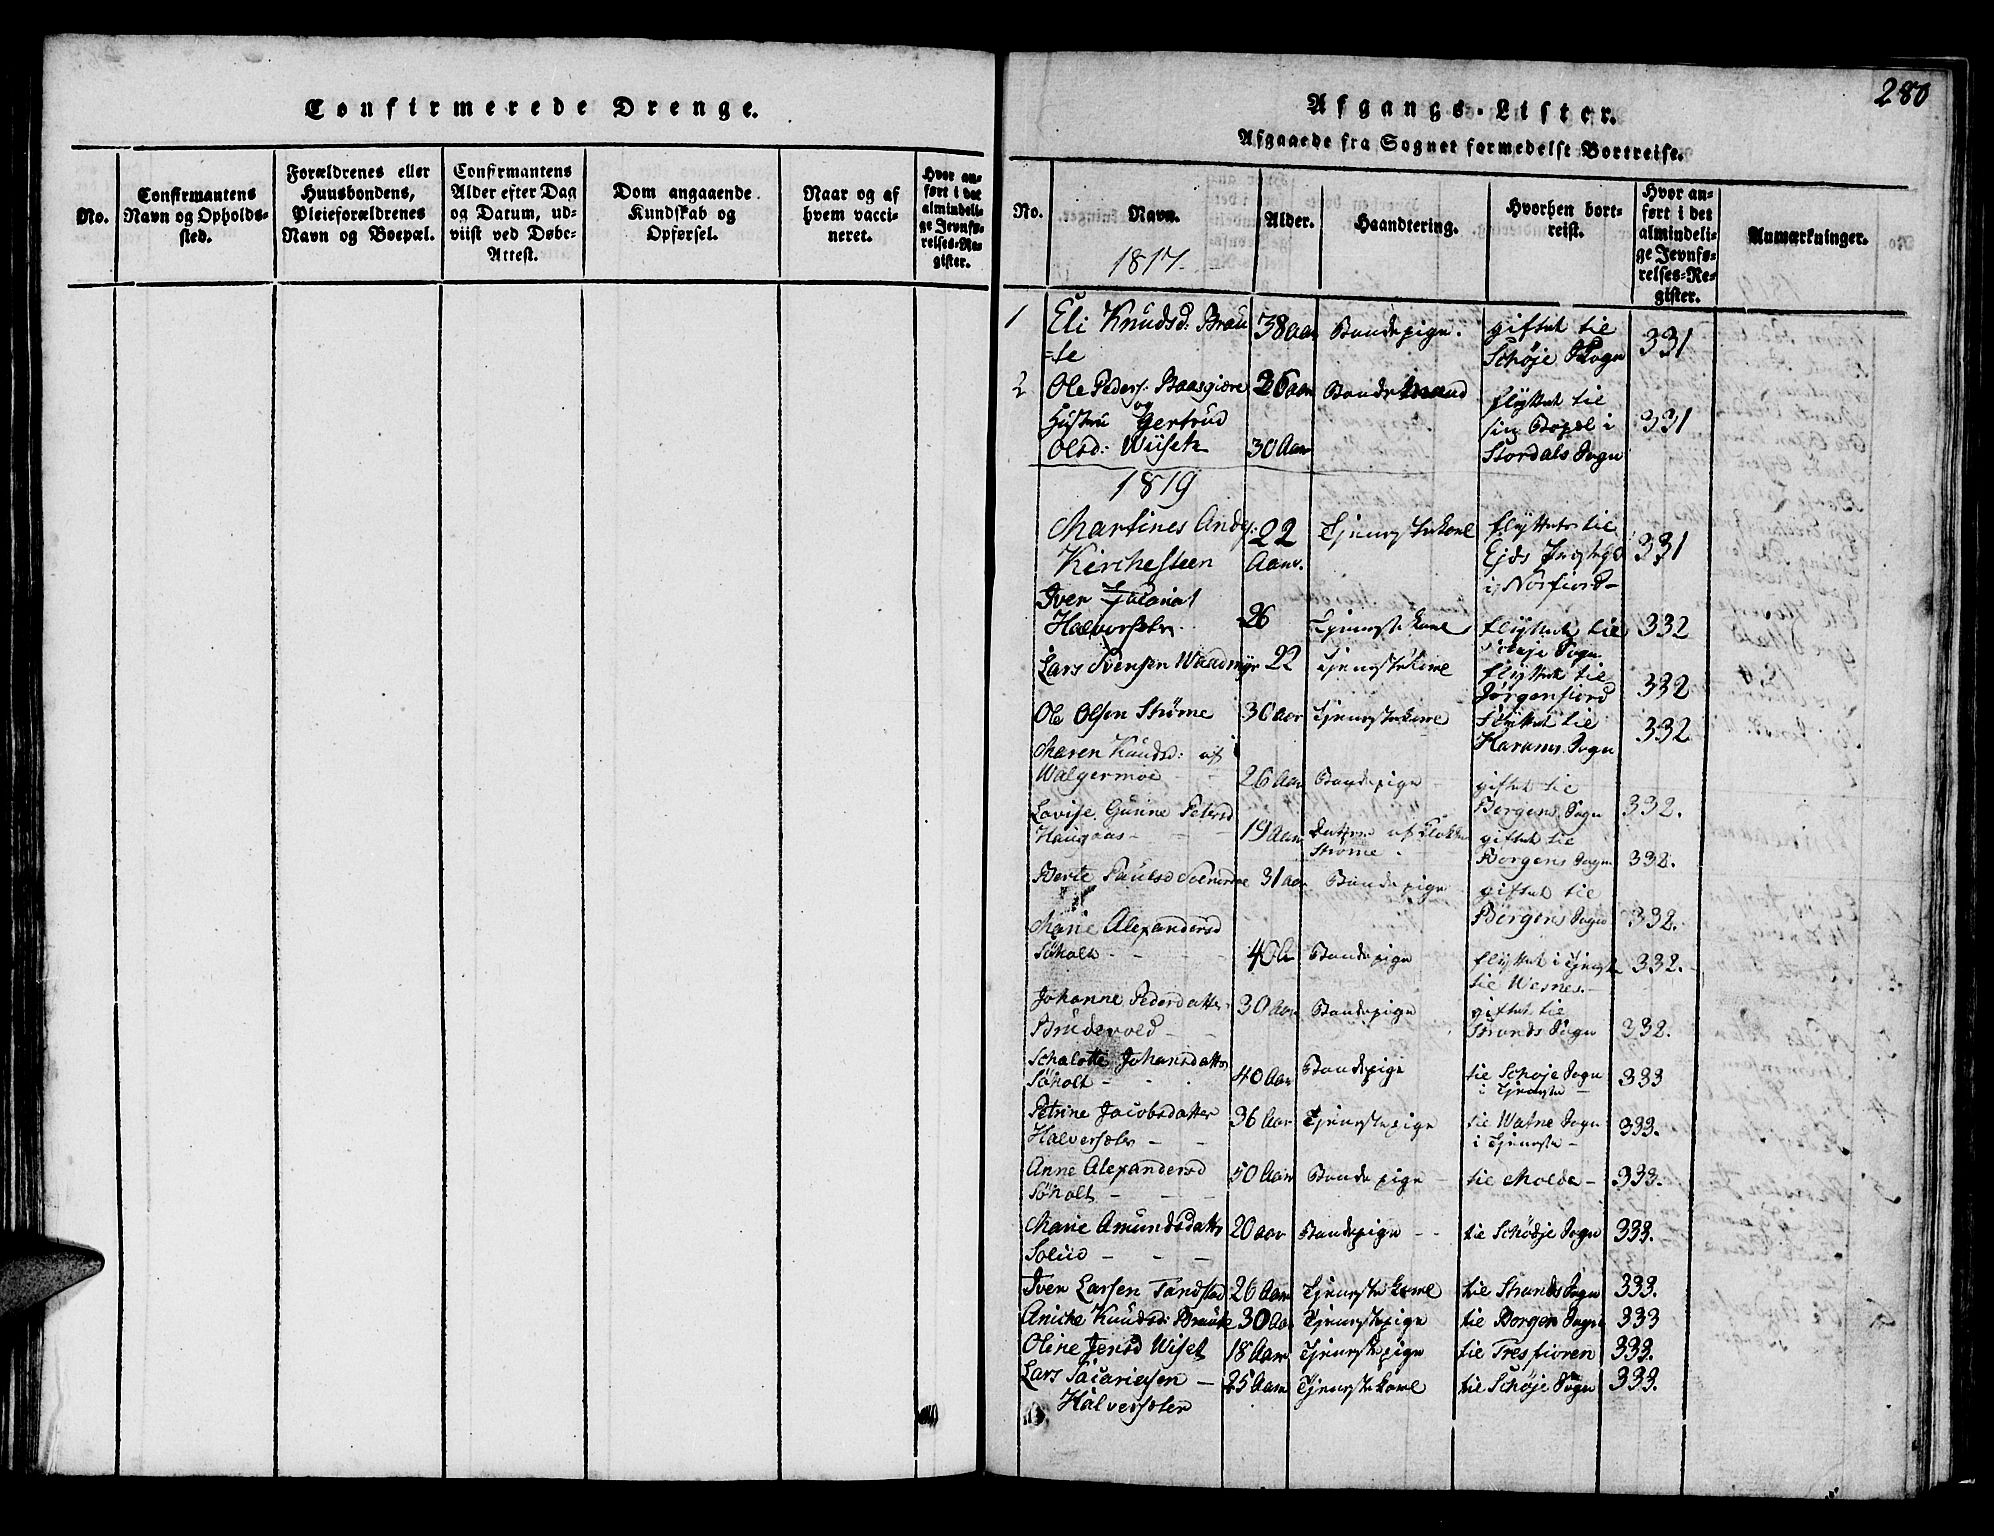 Confirmerede Drenge.
No.
Confirmantens Navn og Opholds-
sted.
Forældrenes eller
Huusbondens,
Pleieforældrenes
Navn og Boepæl.
Confirmantens
Alder efter Dag
og Datum, ud-
viist ved Døbe-
Attest.
Dom angaaende
Kundskab og
Opførsel.
Naar og af
hvem vacci-
neret.
Hvor an-
ført i det
almindeli-
ge Jevnfø-
relses-Re-
gister.
280
Afgangs-Lister.
Afgaaede fra Sognet formedelst Bortreise.
No.
Navn.
Alder.
Haandtering.
Hvorhen bort-
reist.
Hvor an-
ført i det
almindeli-
ge Jevnfø-
relses-Re-
gister.
Anmærkninger.
1817
1 Eli Knudsd: Brau 38 aar Bondepige. giftet til 331
=te Schøje Sogn
2 Ole Peders: Baasgiøre 26 aar Bondemand flyttet til
og
Hustru Gertrud sin Bopæl i 331
Olsd: Wiiseth 30 Aar Stordals Sogn
1819
Martines Andr: 22 Tjenestekarl flyttet til 331
Kirchesteen Aar. Ejds Prestegd
i Norfiord
Iver
Halversæter 26 Tjenestekarl flyttet til 332
Sogn
Lars Svensen Waadmyr 22 Tjenestekarl flyttet til
Jørgenfiord 332
Ole Olsen Strøme 30 aar Tjenestekarl flyttet til 332
Harams Sogn
Maren Knudsd: af
Walgermoe 26 Aar Bondepige giftet til
Borgens Sogn 332.
Lovise Gunne Petersd
Haugaas 19 Aar datter af Klokker giftet til
Strøme Borgens Sogn 332.
Berte Paulsd 31 aar Bondepige giftet til
Borgens Sogn 332.
Marie Alexandersd
Søholt 40 Bondepige flyttet i Tjeneste 332.
til Wesnes.
Johanne Pedersdatter 30 Aar Bondepige giftet til
Brudevold Strands Sogn 332.
Schalotte Johansdatter
Søholt 40 Aar Bondepige til Schøje Sogn 333
i Tjeneste
Petrine Jacobsdatter 36 Aar Tjenestepige til Watne Sogn 333.
Halversæter i Tjeneste
Anne Alexandersd 50 Aar Bondepige til Molde 333.
Søholt
Marie Amundsdatter 20 aar Bondepige til Schødje Sogn 333.
Soliid
Iver Larsen Tandstad 26 Aar Tjenestekarl til Strands Sogn 333.
Aniche Knudsd: Braute 30 Aar Tjenestepige til Borgen Sogn 333
Oline Jensd Wiset 18 Aar Tjenestepige til Tresfioren 333.
Lars Sacariasen 25 Aar Tjenestekarl til Schøje Sogn 333.
Halversæter